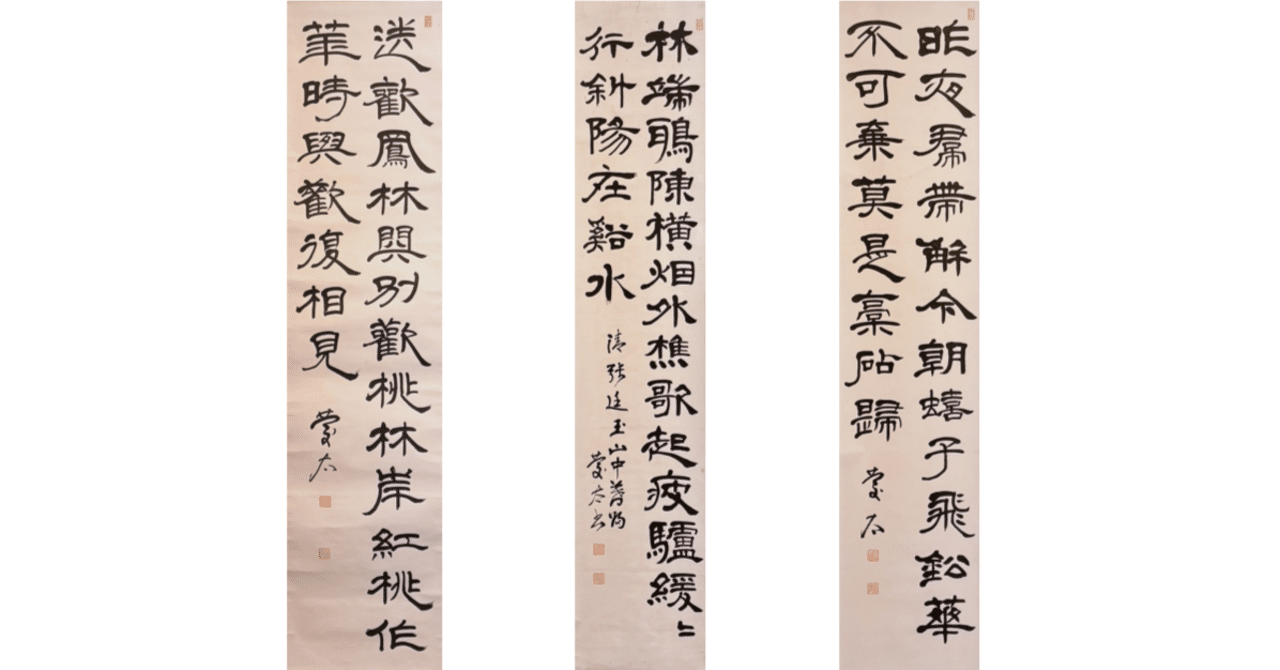 昨夜帬帶解今朝蟢子飛鈆華
不可棄莫是稾砧歸
林端鴉陳橫烟外樵歌起疲驢緩〻
行斜陽在谿水
清張廷玉山中暮歸
送歡鳳林與別歡桃林岸紅桃作
華時與歡復相見